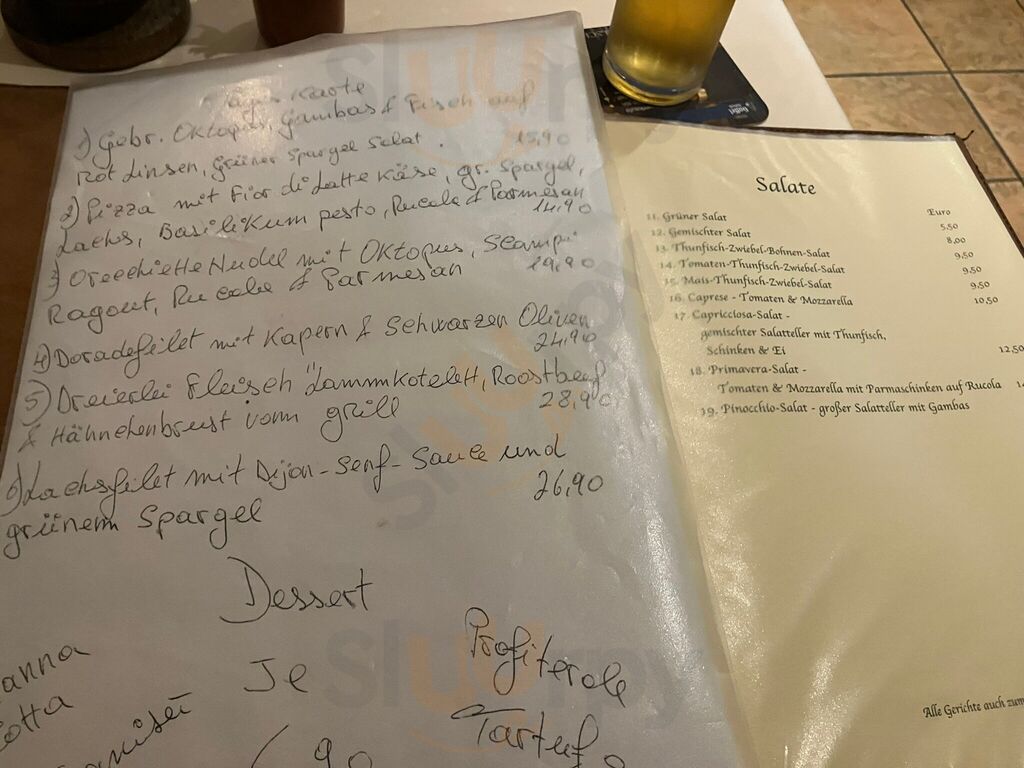 Tages Karte
1) Gebr. Oktopus, Gambas & Fisch auf
Rot Linsen, Grüner Spargel Salat. 15,90
2) Pizza mit Fior di Latte Käse, gr. Spargel,
Lachs, Basilikum pesto, Rucola & Parmesan
14,90
3) Orecchiette Nudel mit Oktopus, Scampi
Ragout, Rucola & Parmesan 19,90
4) Doradefilet mit Kapern & Schwarzen Oliven
24,90
5) Dreierlei Fleisch "Lammkotelett, Roostbeef
& Hähnchenbrust vom grill 28,90
6) Lachsfilet mit Dijon-Senf-Sauce und
grünem Spargel 26,90
Dessert
anna
otta
Je
Profiterole
Tartufo
90
Salate
Euro
11. Grüner Salat 5,50
12. Gemischter Salat 8,00
13. Thunfisch-Zwiebel-Bohnen-Salat 9,50
14. Tomaten-Thunfisch-Zwiebel-Salat 9,50
15. Mais-Thunfisch-Zwiebel-Salat 9,50
16. Caprese - Tomaten & Mozzarella 10,50
17. Capricciosa-Salat -
gemischter Salatteller mit Thunfisch,
Schinken & Ei 12,50
18. Primavera-Salat -
Tomaten & Mozzarella mit Parmaschinken auf Rucola
19. Pinocchio-Salat - großer Salatteller mit Gambas
Alle Gerichte auch zum
sluurpy
sluurpy
sluurpy